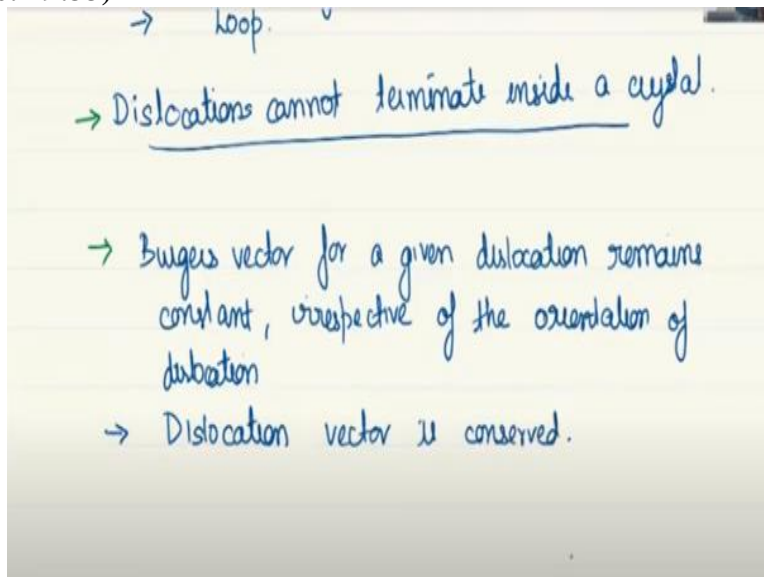 → Loop.
→ Dislocations cannot terminate inside a crystal.
→ Burgers vector for a given dislocation remains
constant, irrespective of the orientation of
dislocation
→ Dislocation vector is conserved.